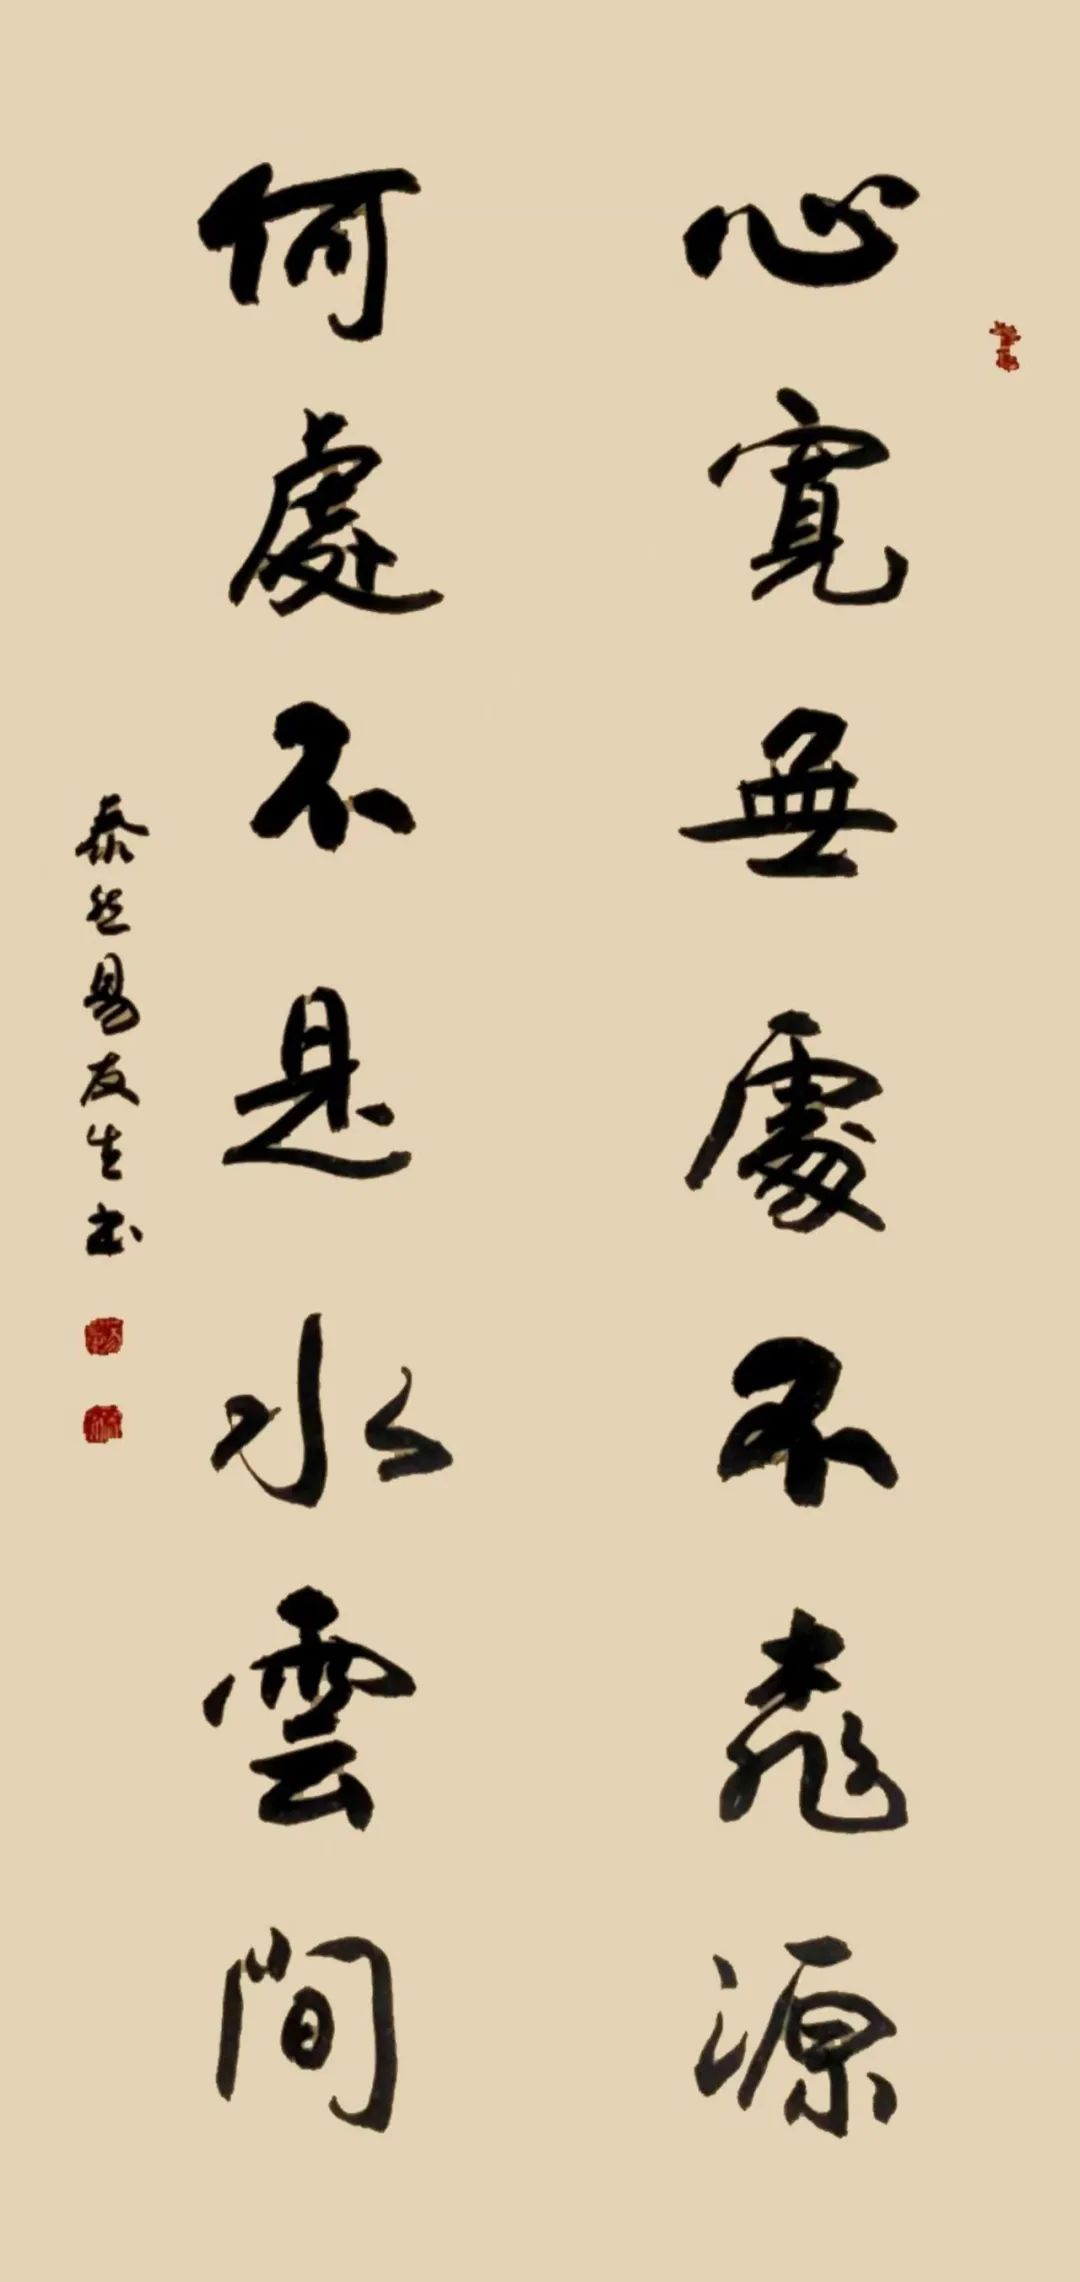 心寬無處不桃源
何處不是水雲間
泰然易友生书